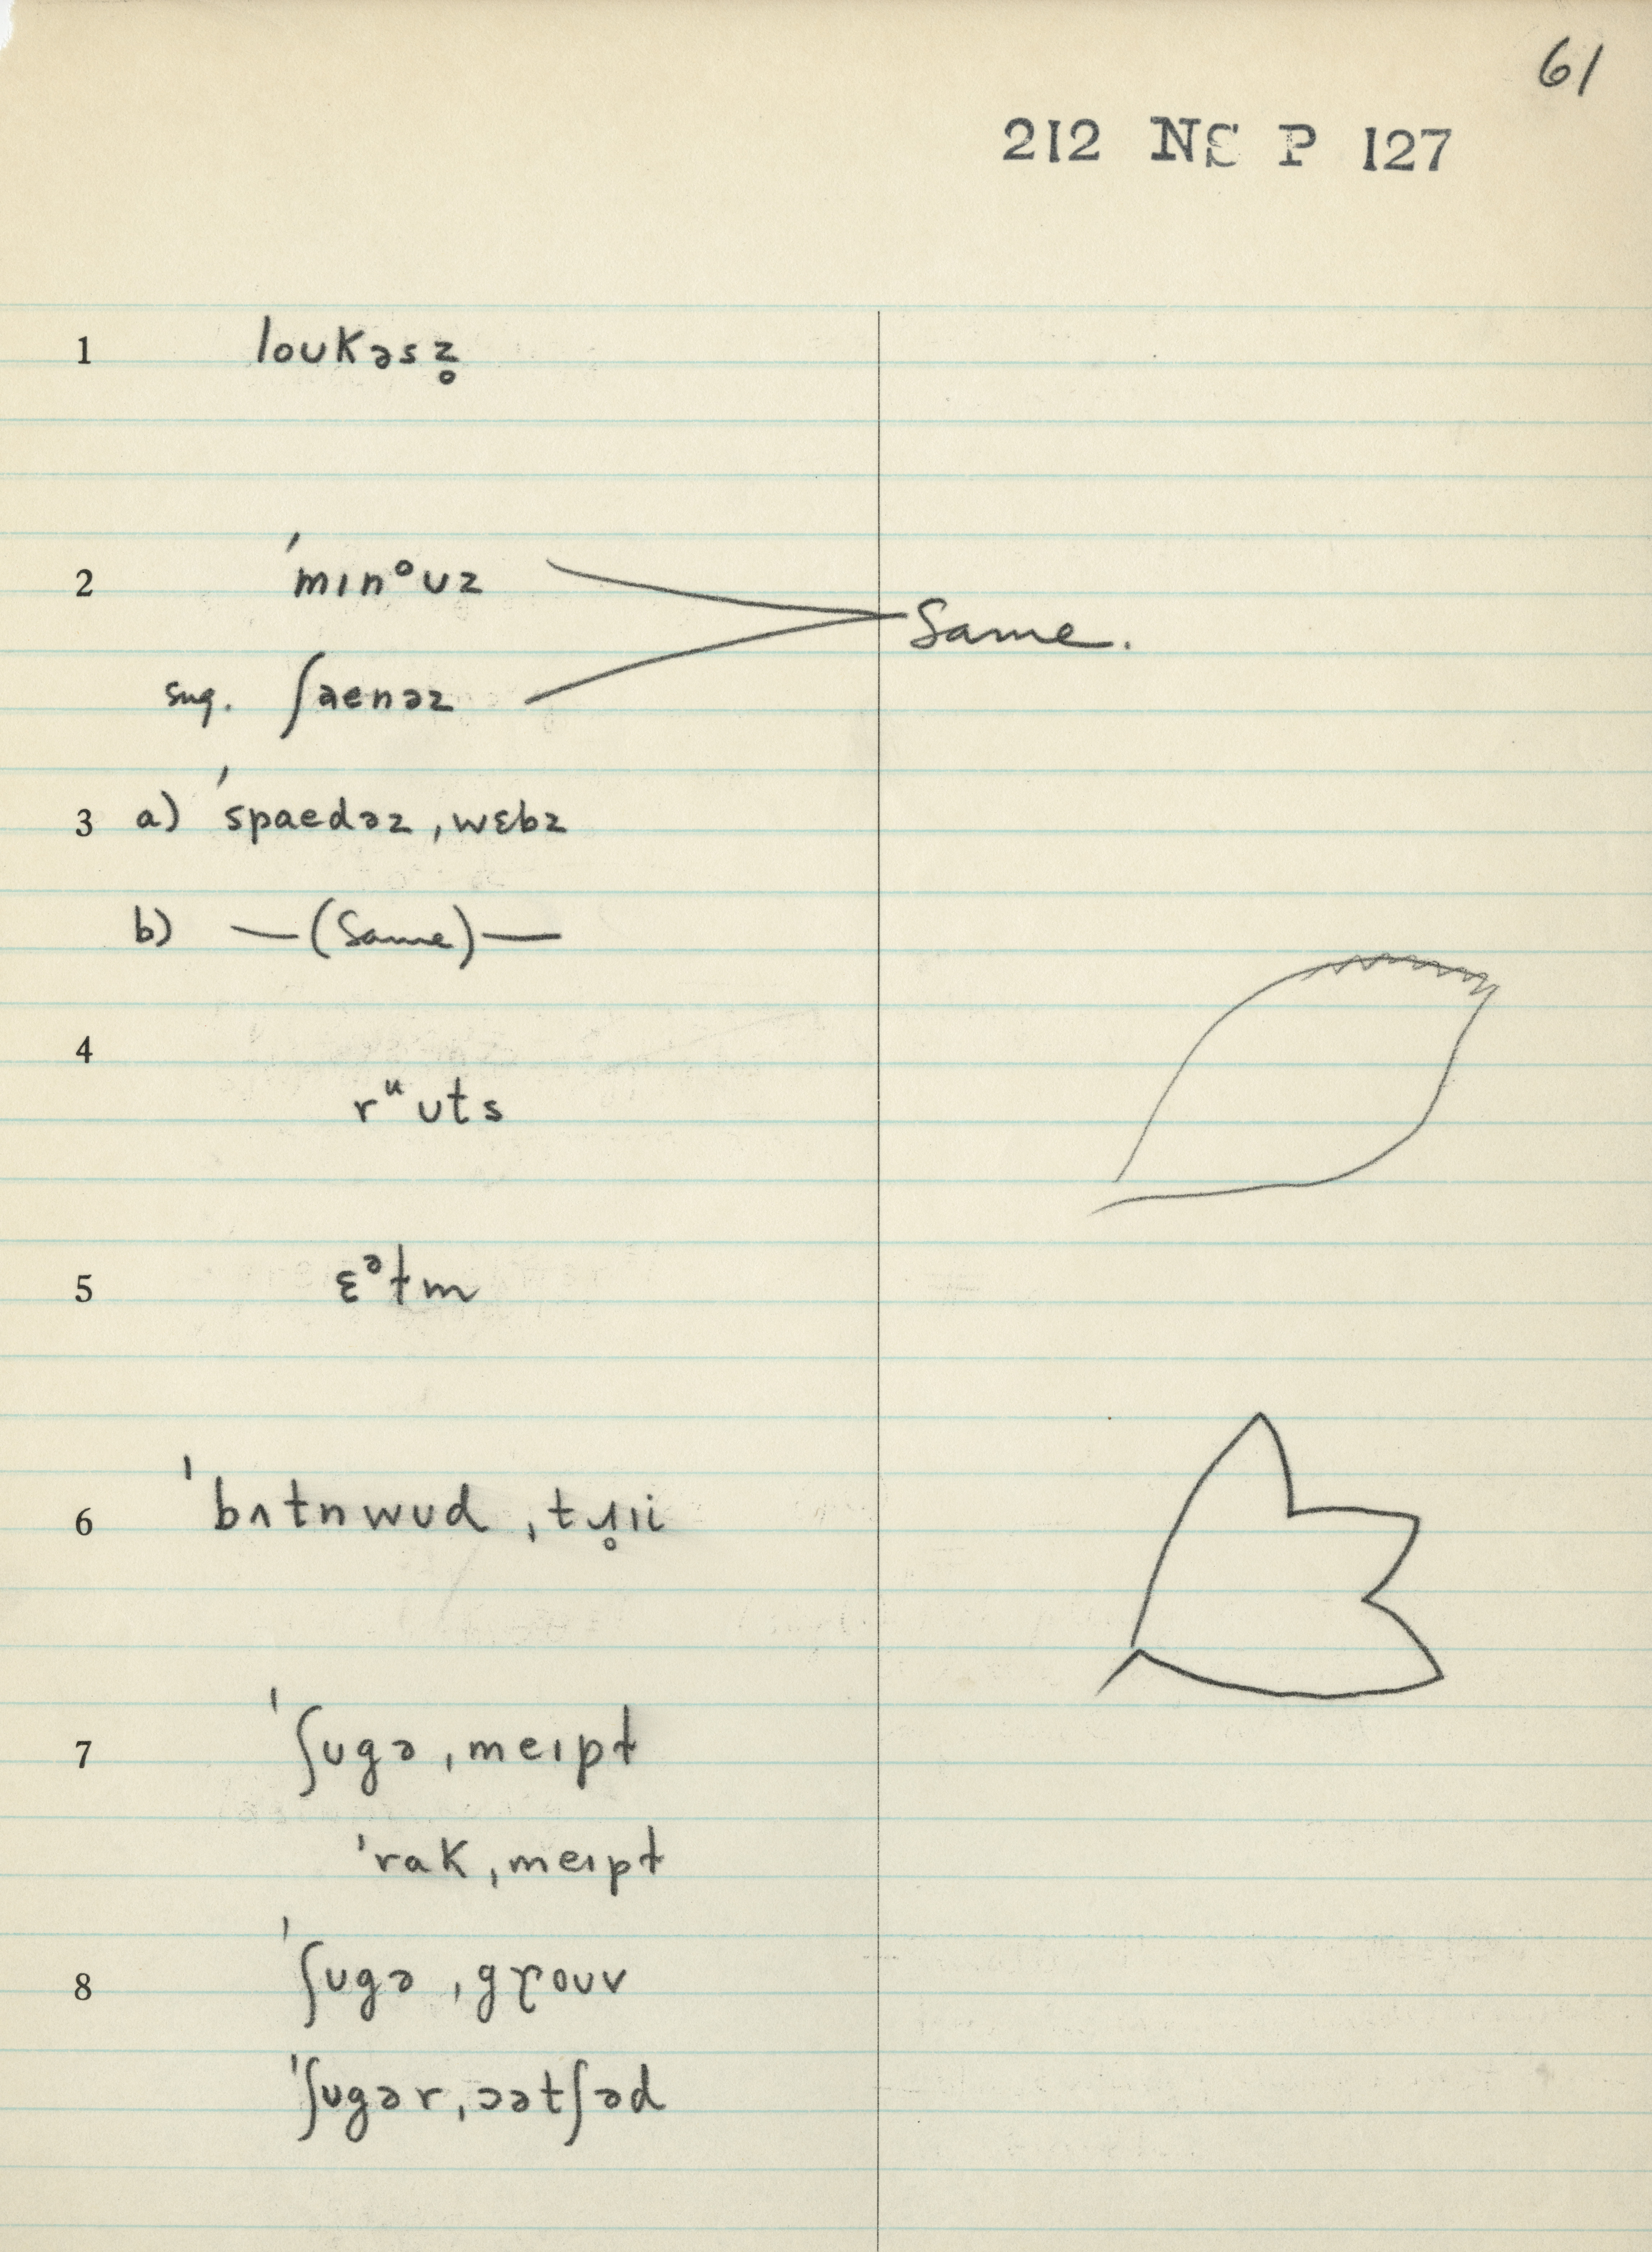 61
212 NS P 127
1 loukəsz̥
2 ˈmɪnᵒʊz
Same.
sug. ʃaenəz
3 a) ˈspaedəz ˌwɛbz
b) —(Same)—
4
rᵘʊts
5 ɛᵊɫm
6 ˈbʌtnwʊd ˌtɹ̥ɪi
7 ˈʃʊgə ˌmeɪpɫ
ˈrak ˌmeɪpɫ
8 ˈʃʊgə ˌgɼoʊv
ˈʃʊgər ˌɔətʃəd